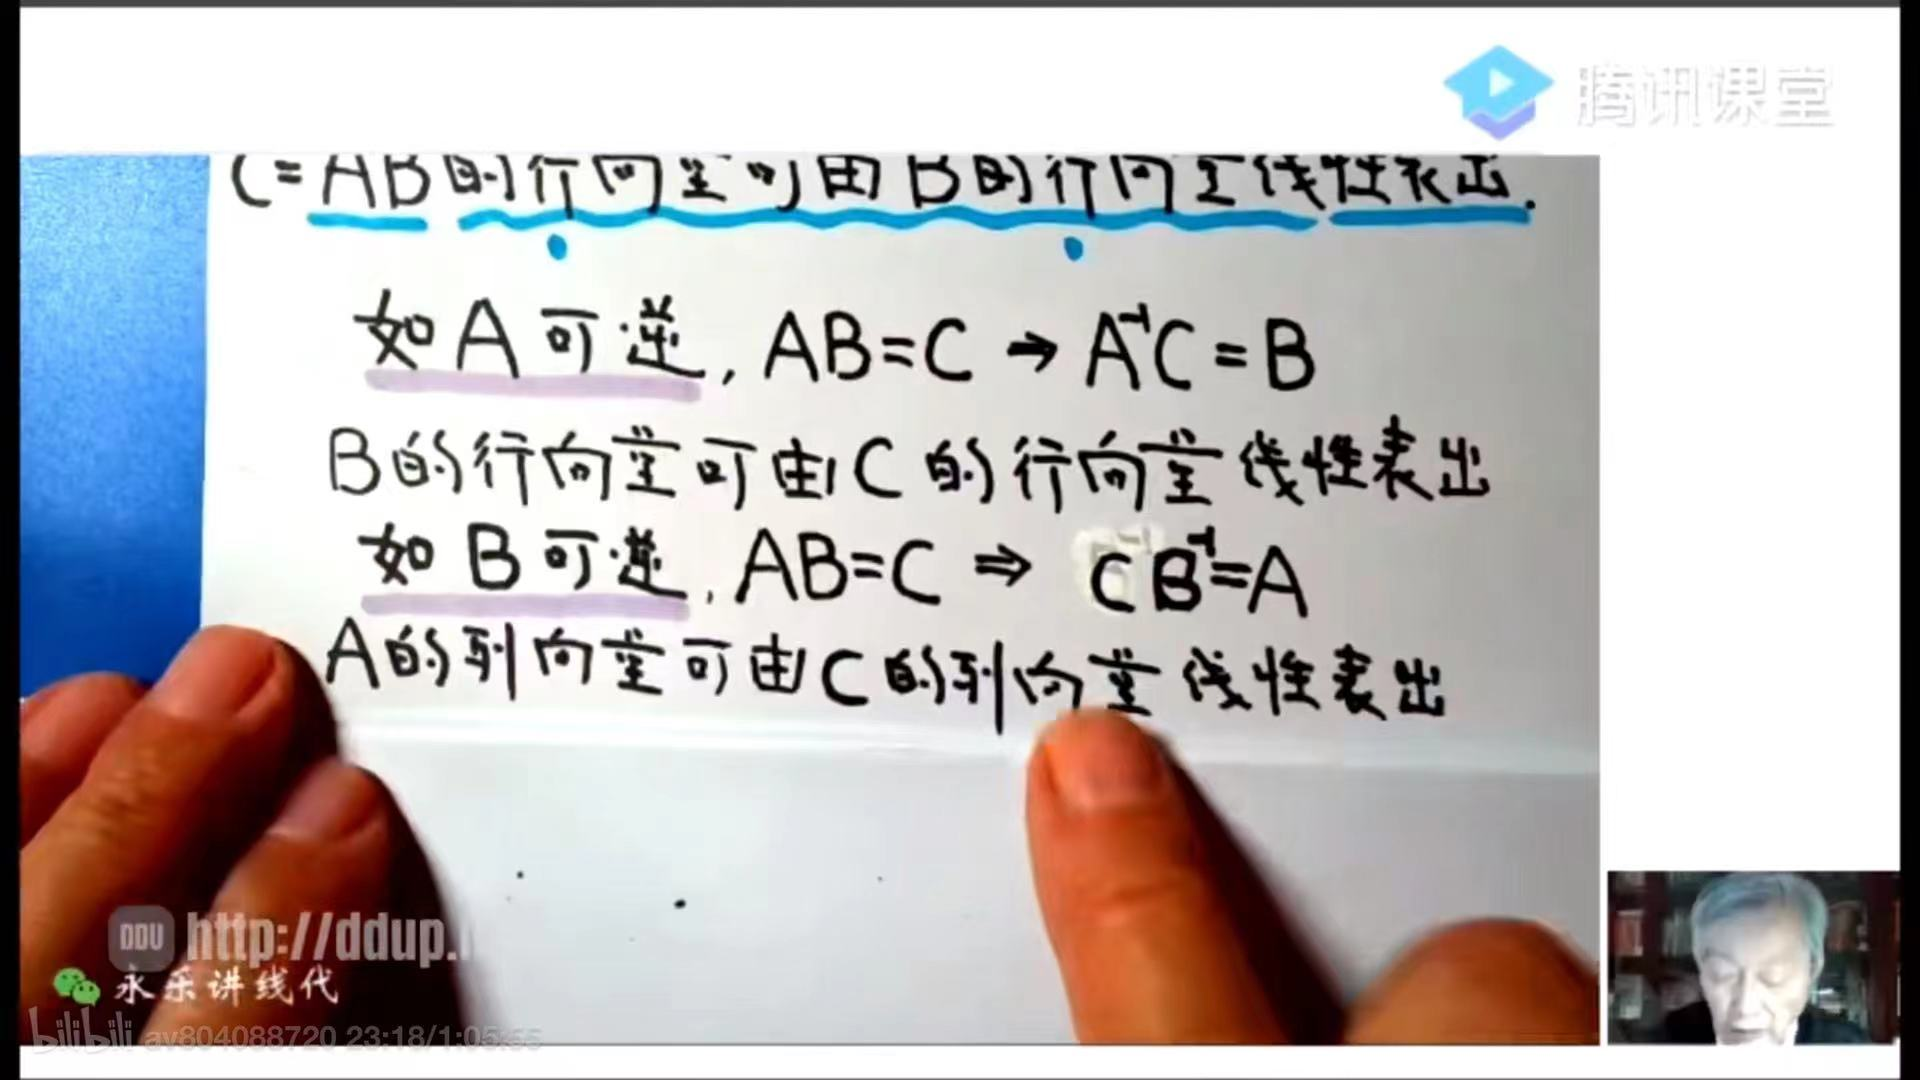 腾讯课堂
C=AB的行向量可由B的行向量线性表出.
如A可逆, AB=C → A⁻¹C=B
B的行向量可由C的行向量线性表出
如B可逆, AB=C ⇒ CB⁻¹=A
A的列向量可由C的列向量线性表出
DDU http://ddup.
永乐讲线代
bilibili av804088720 23:18/1:05:55